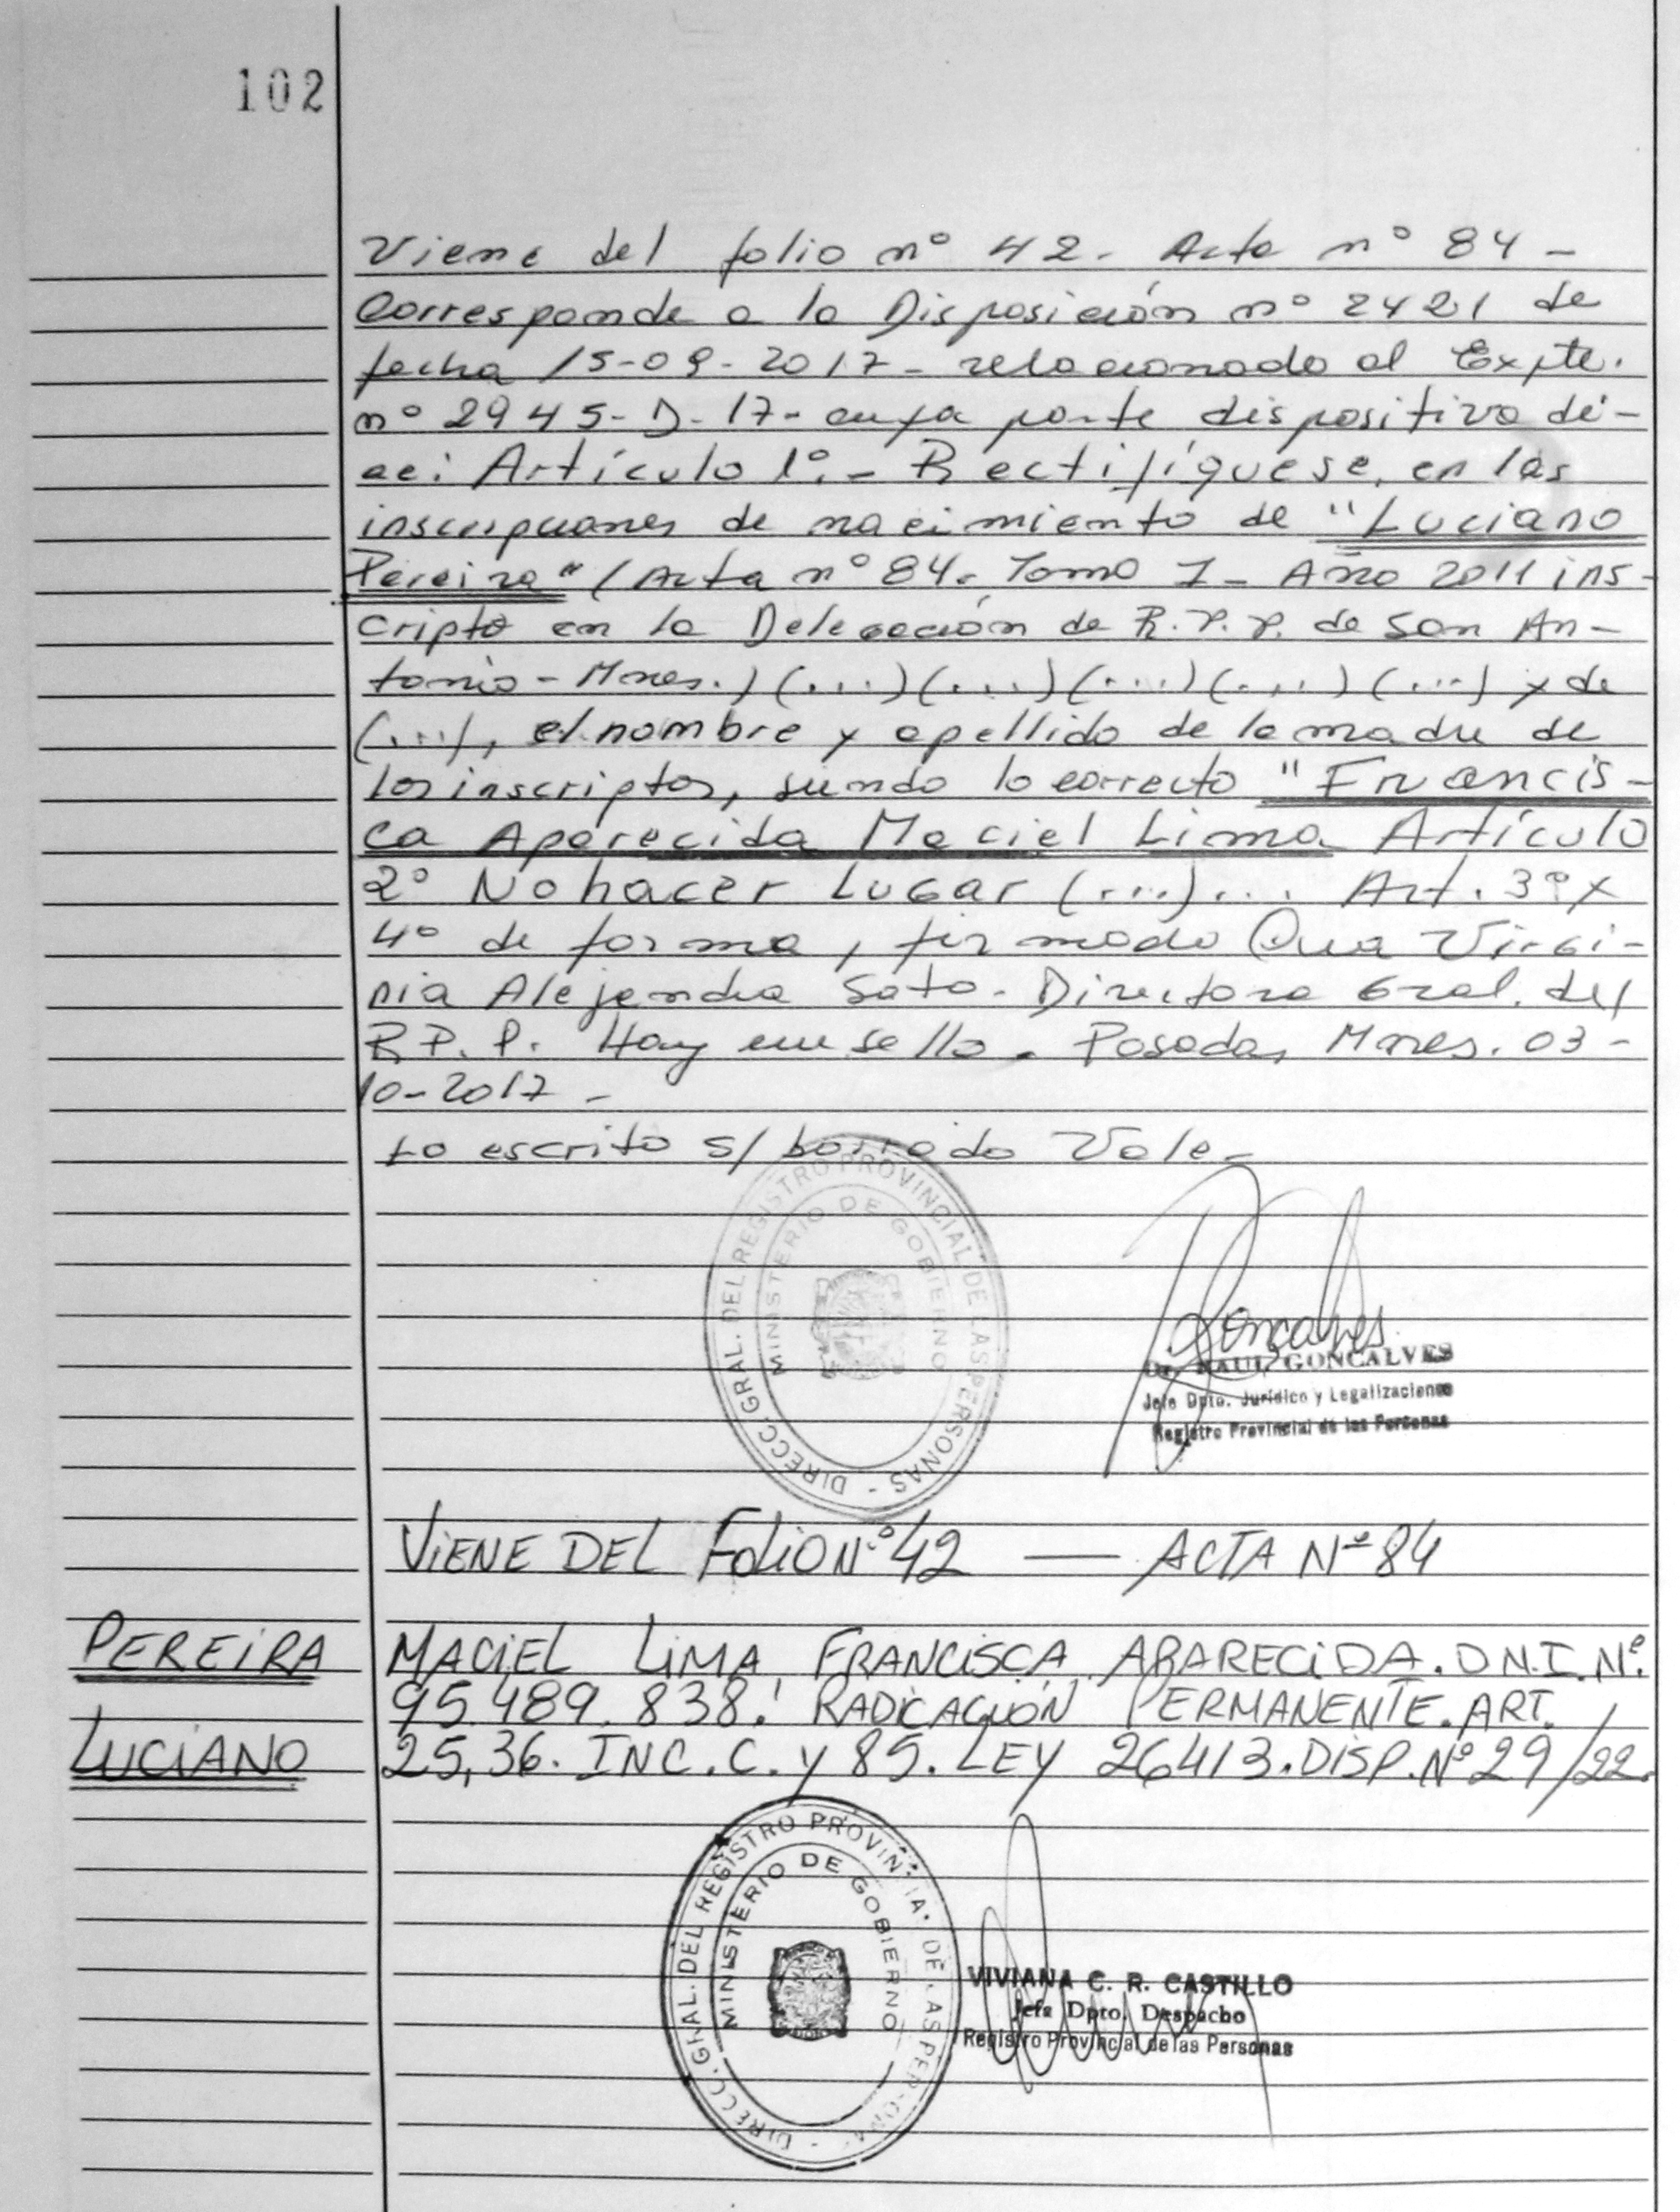 102
Viene del folio nº 42. Acta nº 84 -
Corresponde a la Disposición nº 2421 de
fecha 15-09-2017 - relacionado al Expte.
nº 2945-D-17- cuya parte dispositiva di-
ce: Artículo 1º.- Rectifíquese, en las
inscripciones de nacimiento de "Luciano
Pereira" (Acta nº 84. Tomo I - Año 2011 ins-
cripto en la Delegación de R.P.P. de San An-
tonio - Mnes.) (...) (...) (...) (...) (...) y de
(...), el nombre y apellido de la madre de
los inscriptos, siendo lo correcto "Francis-
ca Aparecida Maciel Lima Artículo
2º No hacer Lugar (...)... Art. 3º y
4º de forma, firmado Dra Virgi-
nia Alejandra Soto - Directora Gral. del
R.P.P. Hay un sello. Posadas, Mnes. 03-
10-2017 -
Lo escrito s/ borrado Vale -
DIRECC. GRAL. DEL REGISTRO PROVINCIAL DE LAS PERSONAS -
MINISTERIO DE GOBIERNO
Goncalves
Dr. RAUL GONCALVES
Jefe Dpto. Jurídico y Legalizaciones
Registro Provincial de las Personas
VIENE DEL FOLIO Nº 42 — ACTA Nº 84
PEREIRA MACIEL LIMA, FRANCISCA APARECIDA. D.N.I. Nº.
95.489.838. RADICACIÓN PERMANENTE. ART.
LUCIANO 25,36. INC. C. Y 85. LEY 26413. DISP. Nº 29/22.
DIRECC. GRAL. DEL REGISTRO PROVINCIAL DE LAS PERSONAS -
MINISTERIO DE GOBIERNO
VIVIANA C. R. CASTILLO
Jefa Dpto. Despacho
Registro Provincial de las Personas